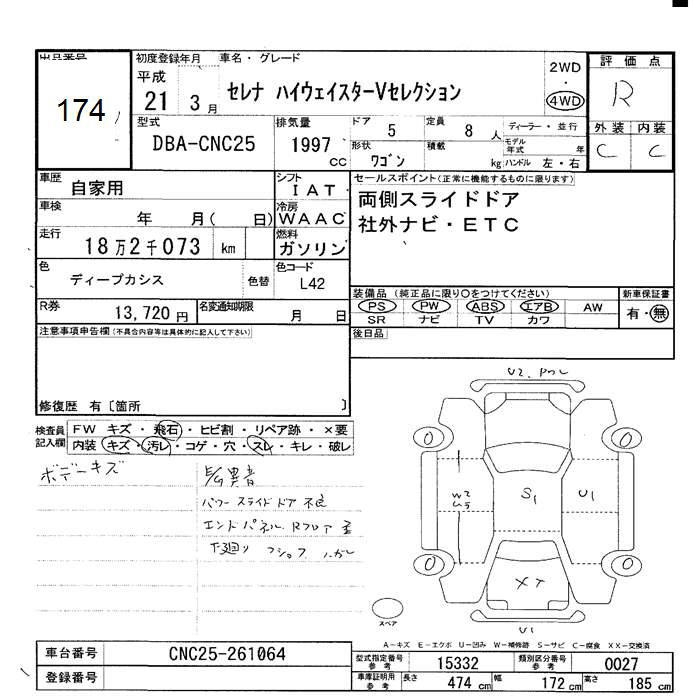 出品番号
174
初度登録年月
車名・グレード
平成
21 3 月
セレナ ハイウェイスターVセレクション
2WD
・
4WD
評価点
R
外装 内装
C C
型式
DBA-CNC25
排気量
1997
CC
ドア
5
定員
8 人
ディーラー・並行
形状
ワゴン
積載
kg
モデル年式 年
ハンドル 左・右
車歴
自家用
シフト
IAT
セールスポイント(正常に機能するものに限ります)
両側スライドドア
社外ナビ・ETC
車検
年 月( 日)
冷房
WAAC
走行
18万2千073 km
燃料
ガソリン
色
ディープカシス
色替
色コード
L42
装備品 (純正品に限り○をつけてください)
PS PW ABS エアB AW
SR ナビ TV カワ
新車保証書
有・無
R券
13,720 円
名変通知期限
月 日
後日品
注意事項申告欄(不具合内容等は具体的に記入して下さい)
修復歴 有〔箇所 〕
検査員記入欄
FW キズ・飛石・ヒビ割・リペア跡・×要
内装 キズ・汚レ・コゲ・穴・スレ・キレ・破レ
ボデーキズ
異音
パワースライドドア不良
エンドパネル Rフロア
下廻り
U2
0 0
W2
S1
U1
0 0
XT
スペア
U1
A-キズ E-エクボ U-凹み W-補修跡 S-サビ C-腐食 XX-交換済
車台番号
CNC25-261064
登録番号
型式指定番号 参考
15332
類別区分番号 参考
0027
車庫証明用 参考
長さ 474 cm
幅 172 cm
高さ 185 cm